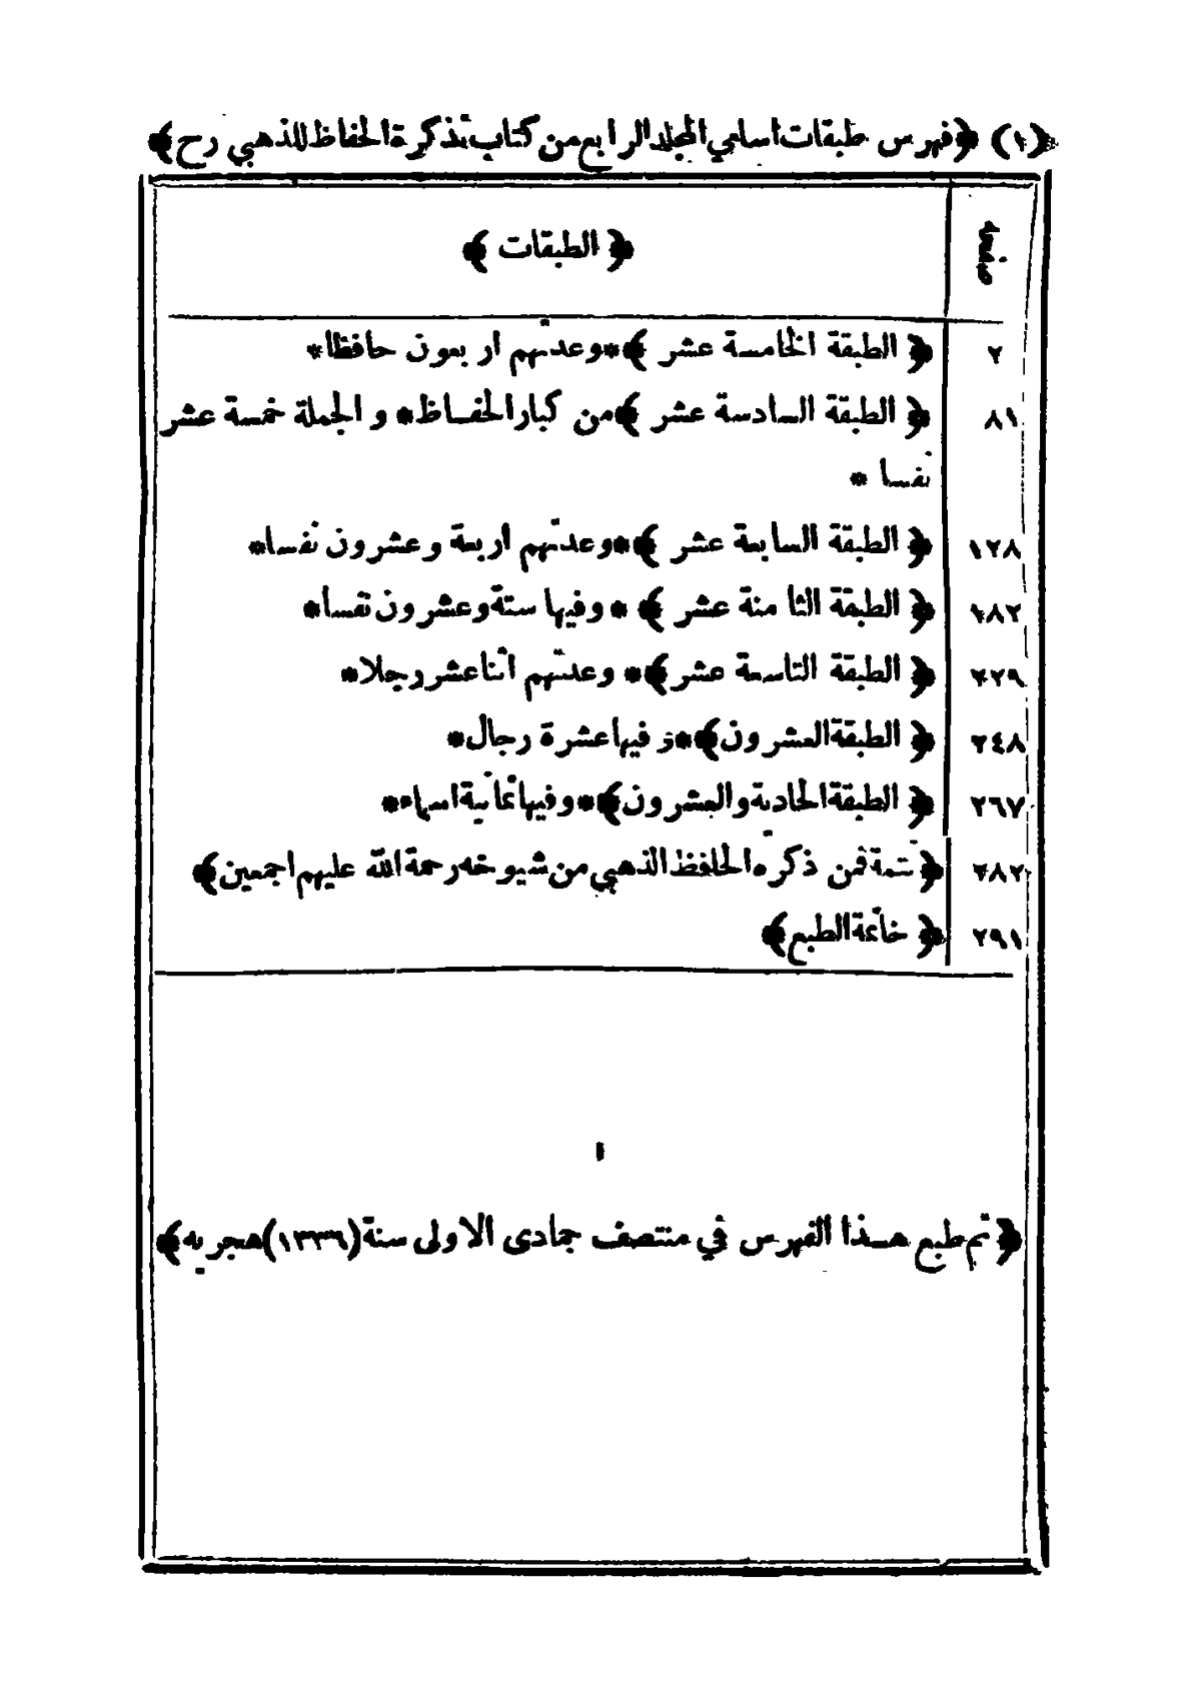 ﴿(١) ﴿فهرس طبقات اسامي المجلد الرابع من كتاب تذكرة الحفاظ للذهبي رح﴾
صفحه ﴿ الطبقات ﴾
٢ ﴿ الطبقة الخامسة عشر ﴾*وعدتهم اربعون حافظا*
٨١ ﴿ الطبقة السادسة عشر ﴾من كبار الحفاظ* و الجملة خمسة عشر
نفسا *
١٢٨ ﴿ الطبقة السابعة عشر ﴾*وعدتهم اربعة وعشرون نفسا*
١٨٢ ﴿ الطبقة الثامنة عشر ﴾ * وفيها ستة وعشرون نفسا*
٢٢٩ ﴿ الطبقة التاسعة عشر ﴾* وعدتهم اثنا عشر رجلا*
٢٤٨ ﴿ الطبقة العشرون﴾*و فيها عشرة رجال*
٢٦٧ ﴿ الطبقة الحادية والعشرون﴾*وفيها ثمانية اسماء*
٢٨٢ ﴿ تتمة فمن ذكره الحافظ الذهبي من شيوخه رحمة الله عليهم اجمعين﴾
٢٩١ ﴿ خاتمة الطبع﴾
﴿ تم طبع هذا الفهرس في منتصف جمادى الاولى سنة (١٣٣٦) هجريه﴾